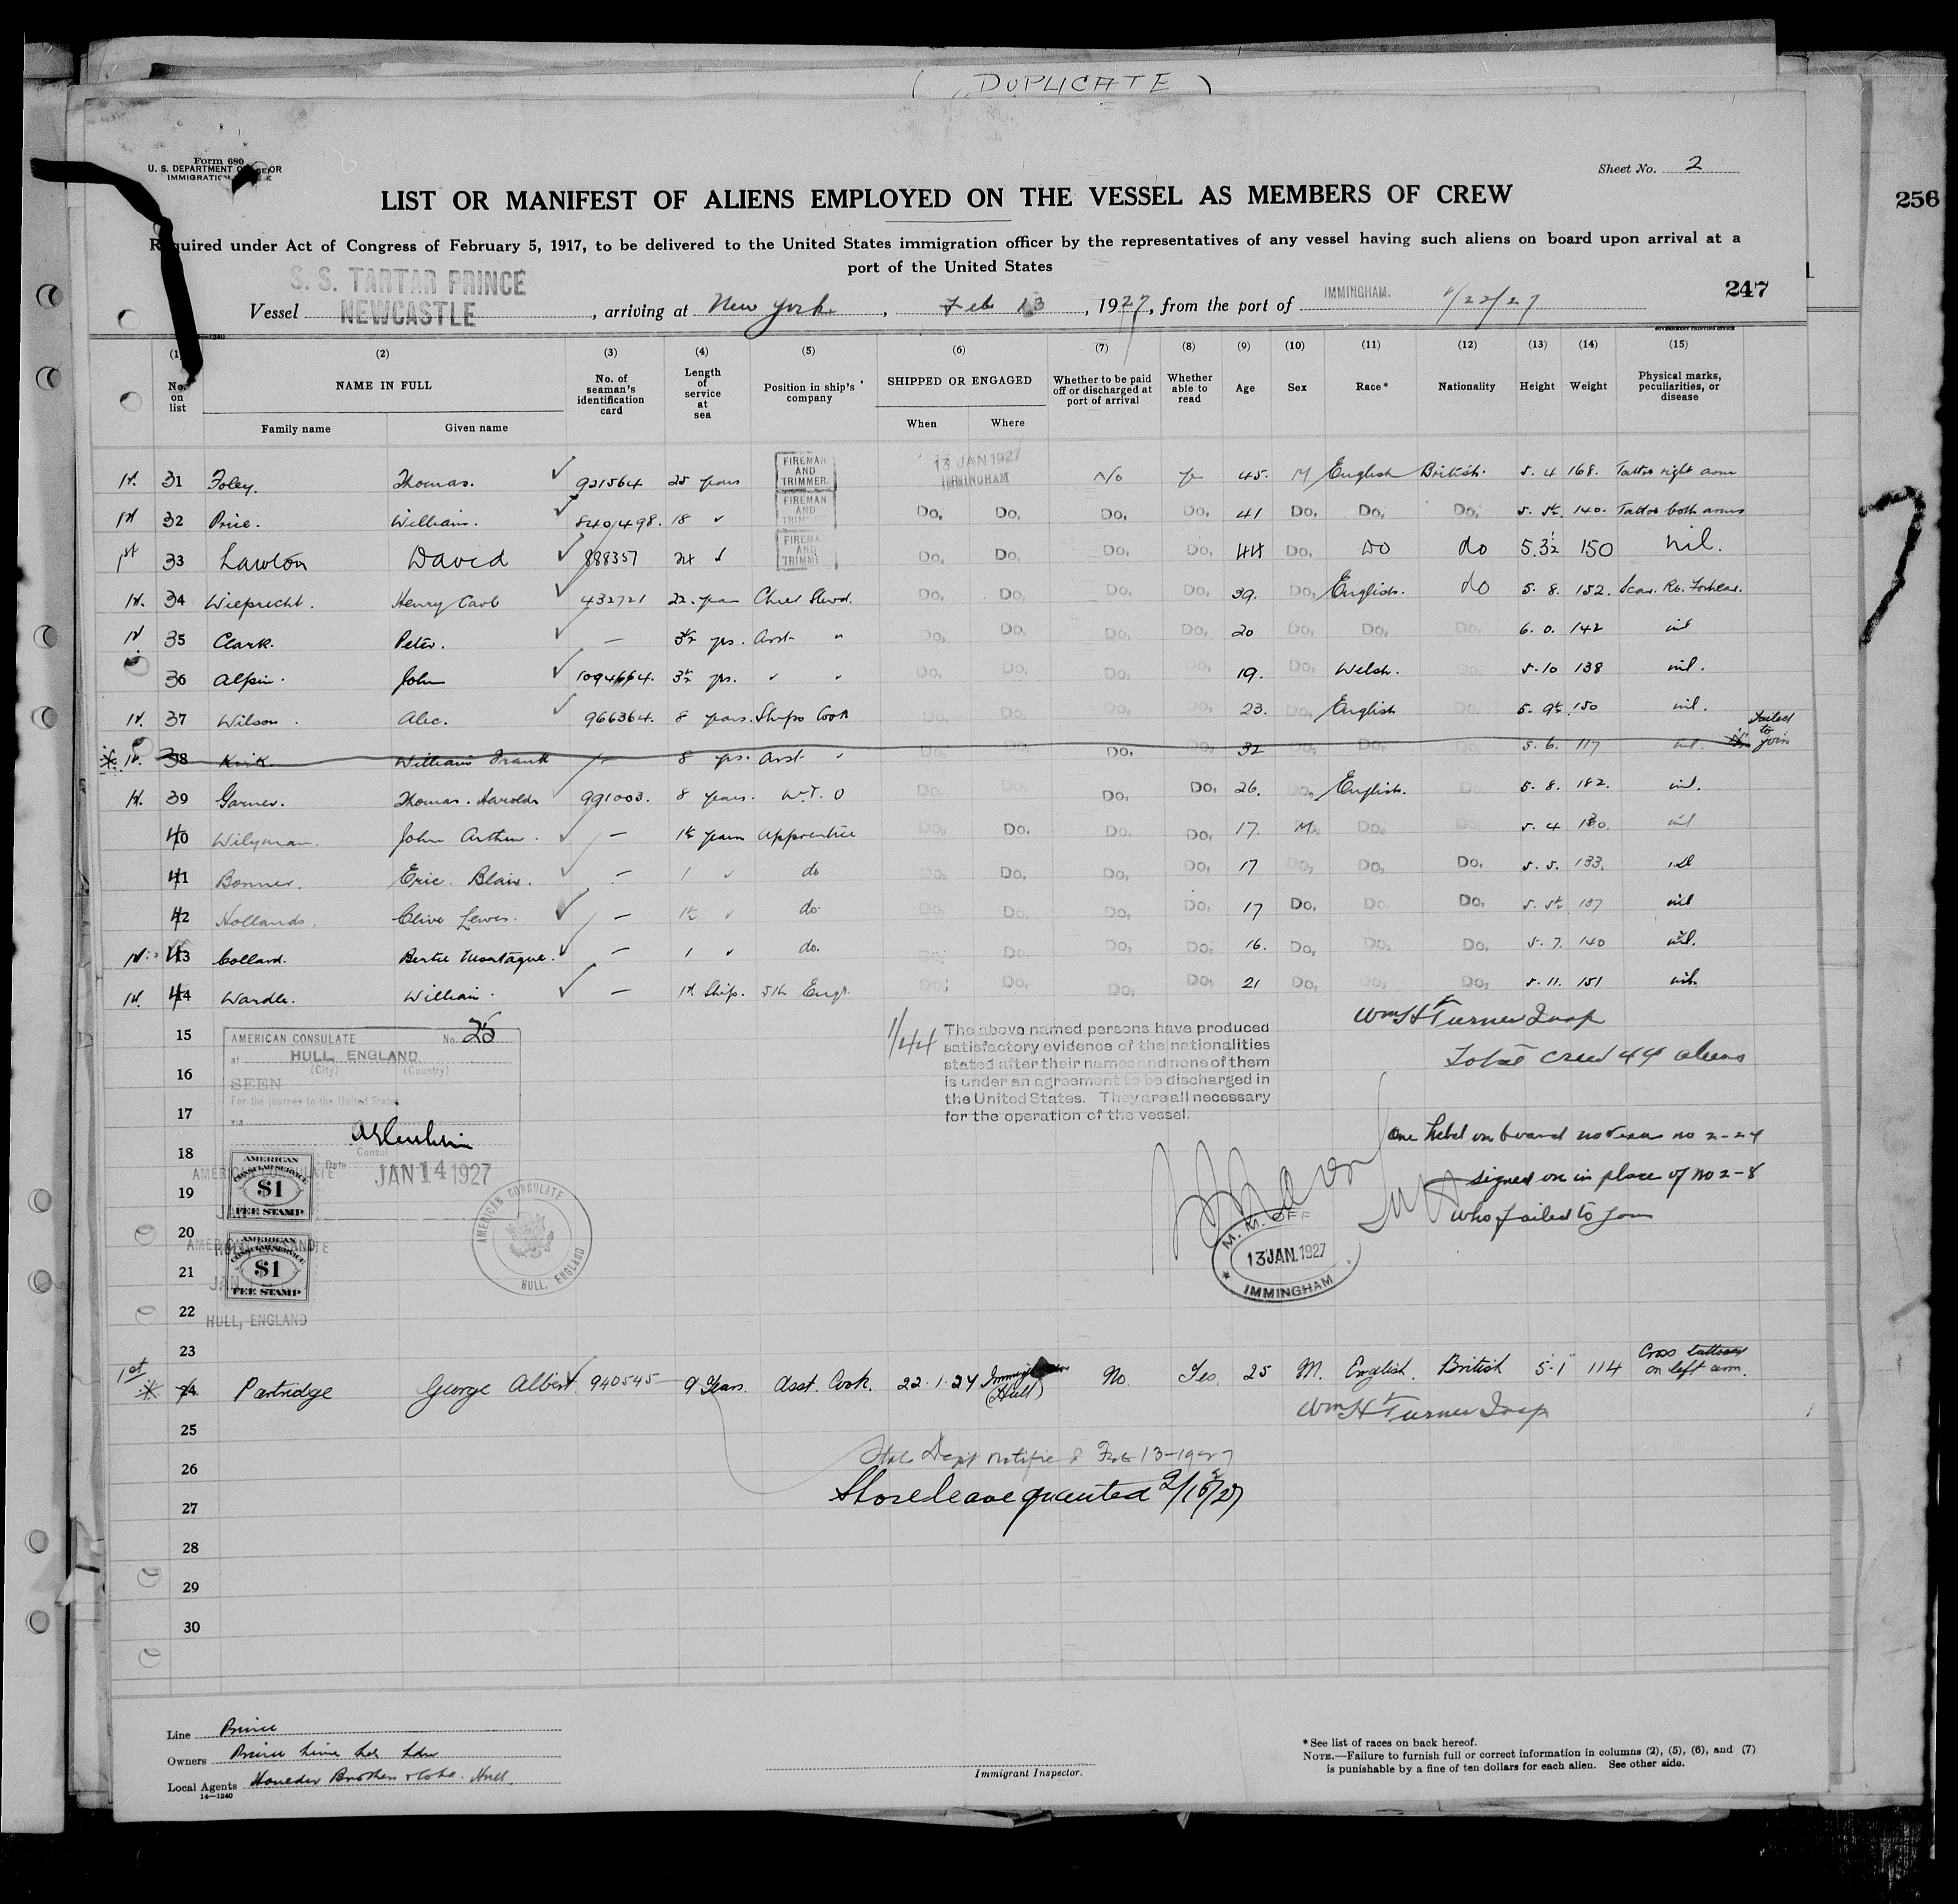 ( DUPLICATE )
Form 680
U. S. DEPARTMENT OF LABOR
IMMIGRATION SERVICE
Sheet No. 2
LIST OR MANIFEST OF ALIENS EMPLOYED ON THE VESSEL AS MEMBERS OF CREW
256
Required under Act of Congress of February 5, 1917, to be delivered to the United States immigration officer by the representatives of any vessel having such aliens on board upon arrival at a
port of the United States
247
Vessel S. S. TARTAR PRINCE NEWCASTLE, arriving at New York, Feb 13, 1927, from the port of IMMINGHAM. 1/22/27
(1) (2) (3) (4) (5) (6) (7) (8) (9) (10) (11) (12) (13) (14) (15)
No. on list NAME IN FULL No. of seaman's identification card Length of service at sea Position in ship's company SHIPPED OR ENGAGED Whether to be paid off or discharged at port of arrival Whether able to read Age Sex Race* Nationality Height Weight Physical marks, peculiarities, or disease
Family name Given name When Where
1st. 31 Foley. Thomas. 921564 25 years FIREMAN AND TRIMMER. 13 JAN 1927 IMMINGHAM No yes 45. M English British. 5. 4 168. Tattoo right arm
1st 32 Price. William. 840498. 18 FIREMAN AND TRIMMER Do. Do. Do. Do. 41 Do. Do. Do. 5. 5½ 140. Tattoo both arms
1st 33 Lawton David 888357 24 FIREMAN AND TRIMMER Do. Do. Do. Do. 44 Do. Do do 5.3½ 150 nil.
1st. 34 Wieprecht. Henry Carl 432721 22 years Chief Stewd. Do. Do. Do. Do. 39. Do. English. do 5. 8. 152. Scar. Rt. Forhead.
1st 35 Clark. Peter. — 3½ yrs. Asst " Do. Do. Do. Do. 20 Do. Do. Do. 6. 0. 142 nil
36 Alpin. John 1094664. 3½ yrs. " " Do. Do. Do. Do. 19. Do. Welsh. Do. 5. 10 138 nil.
1st. 37 Wilson. Alec. 966364. 8 years. Ships Cook Do. Do. Do. Do. 23. Do. English Do. 5. 9½ 150 nil.
1st. 38 Kirk. William Frank — 8 yrs. Asst " Do. Do. Do. Do. 32 Do. Do. Do. 5. 6. 117 nil. Failed to join
1st. 39 Garner. Thomas. Harold 991003. 8 years. W.T. O Do. Do. Do. Do. 26. Do. English. Do. 5. 8. 182. nil.
40 Wilyman. John Arthur. — 1½ years Apprentice Do. Do. Do. Do. 17. M. Do. Do. 5. 4 130. nil
41 Bonner. Eric. Blair. — 1 do Do. Do. Do. Do. 17 Do. Do. Do. 5. 5. 133. nil
42 Hollands. Clive Lewis. — 1½ do. Do. Do. Do. Do. 17 Do. Do. Do. 5. 5½ 137 nil
1st 43 Collard. Bertie Montague. — 1 do. Do. Do. Do. Do. 16. Do. Do. Do. 5. 7. 140 nil.
1st. 44 Wardle. William. — 1st Ship. 5th Engr. Do. Do. Do. Do. 21 Do. Do. Do. 5. 11. 151 nil.
Wm H Turner Insp
Total Crew 44 aliens
15
16
17
18
19
20
21
22
23
AMERICAN CONSULATE No. 25
at HULL, ENGLAND.
(City) (Country)
SEEN
For the journey to the United States
via
Consul
Date JAN 14 1927
AMERICAN CONSULATE
AMERICAN CONSULAR SERVICE $1 FEE STAMP
AMERICAN CONSULATE
AMERICAN CONSULAR SERVICE $1 FEE STAMP
HULL, ENGLAND
AMERICAN CONSULATE HULL, ENGLAND
1/44
The above named persons have produced
satisfactory evidence of the nationalities
stated after their names and none of them
is under an agreement to be discharged in
the United States. They are all necessary
for the operation of the vessel.
M. M. OFF
13 JAN. 1927
IMMINGHAM
One held on board no visa no 2-24
signed on in place of no 2-8
who failed to join
1st 24 Partridge George Albert 940545 9 Years. Asst. Cook. 22.1.27 Immingham (Hull) No. Yes. 25 M. English. British 5-1" 114 Cross tattooed on left arm.
Wm H Turner Insp
25
26
27
28
29
30
State Dept notified Feb 13-1927
Shore leave granted 2/15/27
Line Prince
Owners Prince Line Ltd Ldn
Local Agents Brothers & Co Ltd. Hull.
14—1240
Immigrant Inspector.
*See list of races on back hereof.
NOTE.—Failure to furnish full or correct information in columns (2), (5), (6), and (7)
is punishable by a fine of ten dollars for each alien. See other side.